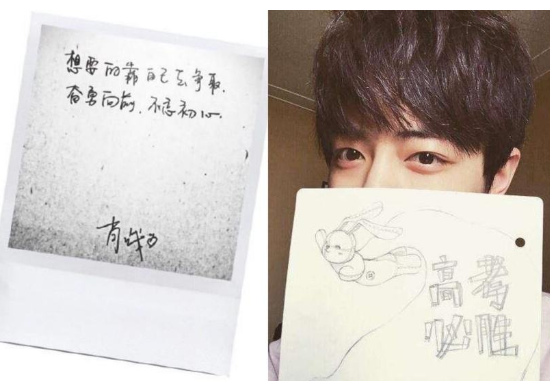 想要的靠自己去争取,
奋勇向前,不忘初心.
高考
必胜